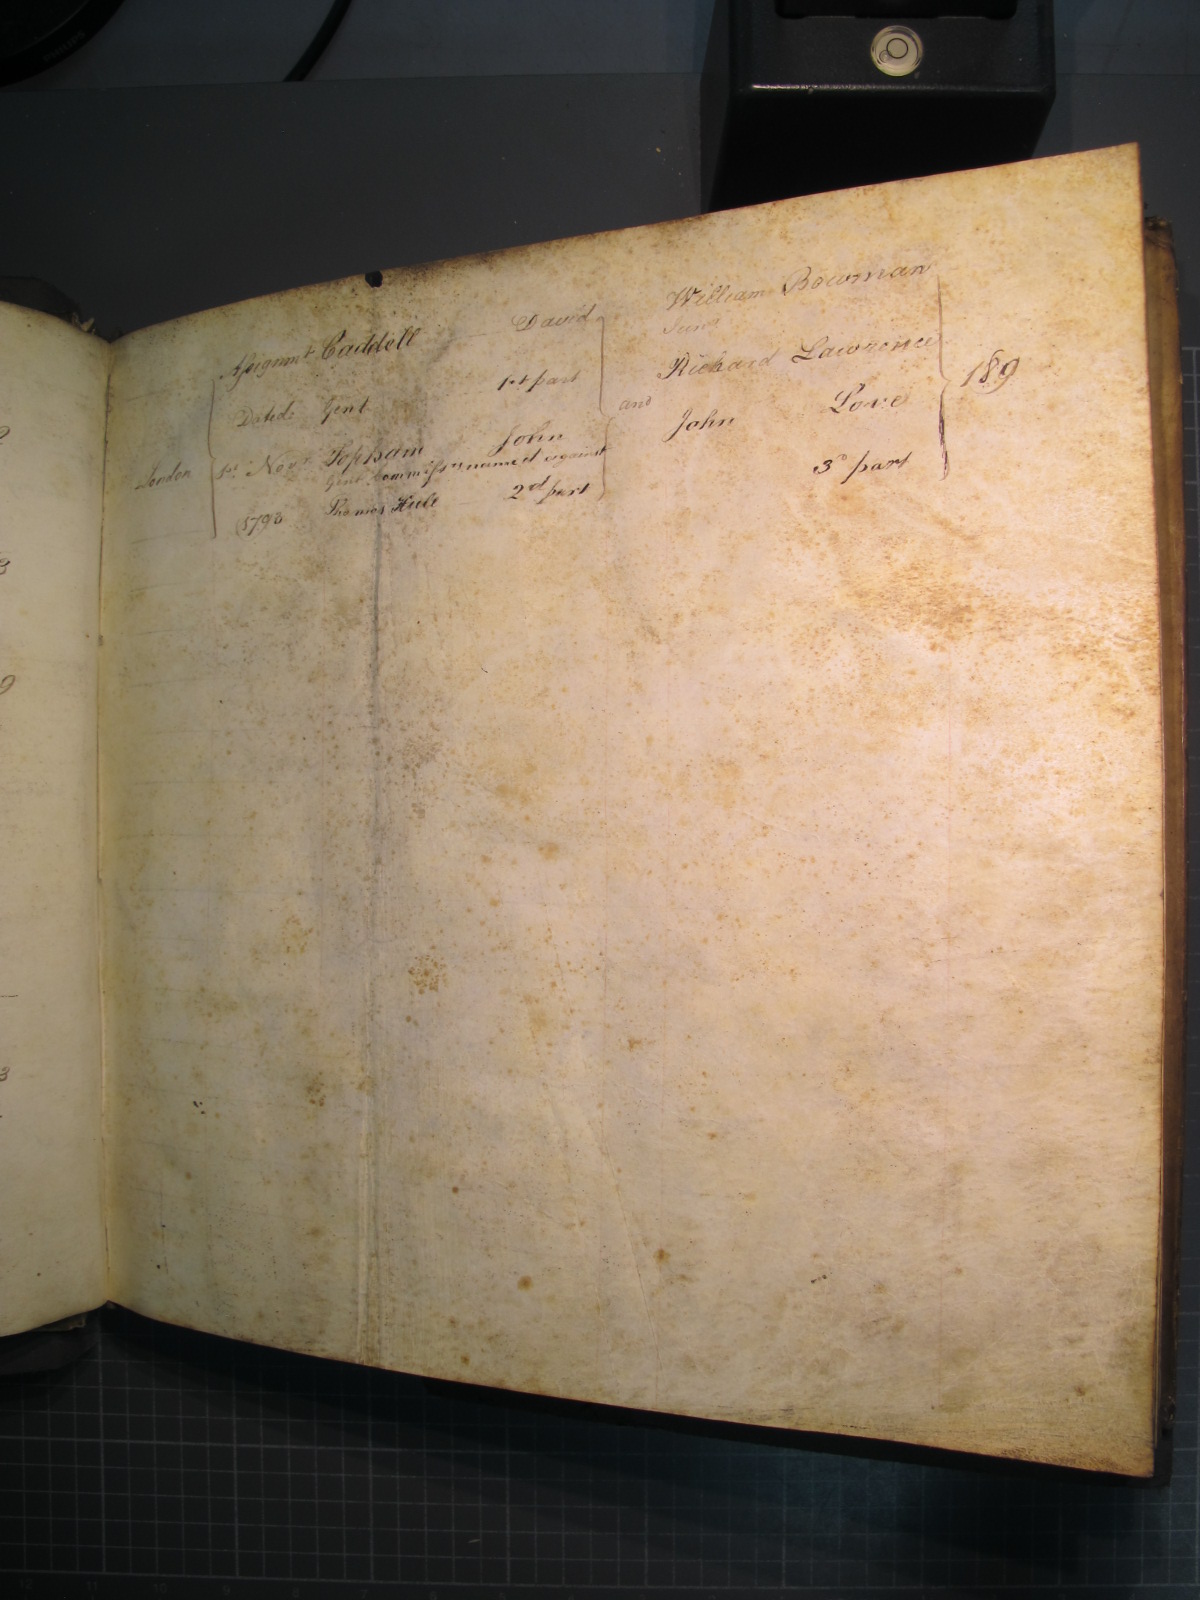 Assignmt Caddell David
Dated Gent 1st part
London 1st Novr Topham John
Gent Commissrs named against
1793 Thomas Hull 2nd part
and
William Bowman
Junr
Richard Lawrence
John Love
3d part
189
9
3
9
3
PHILIPS
12 11 10 9 8 7